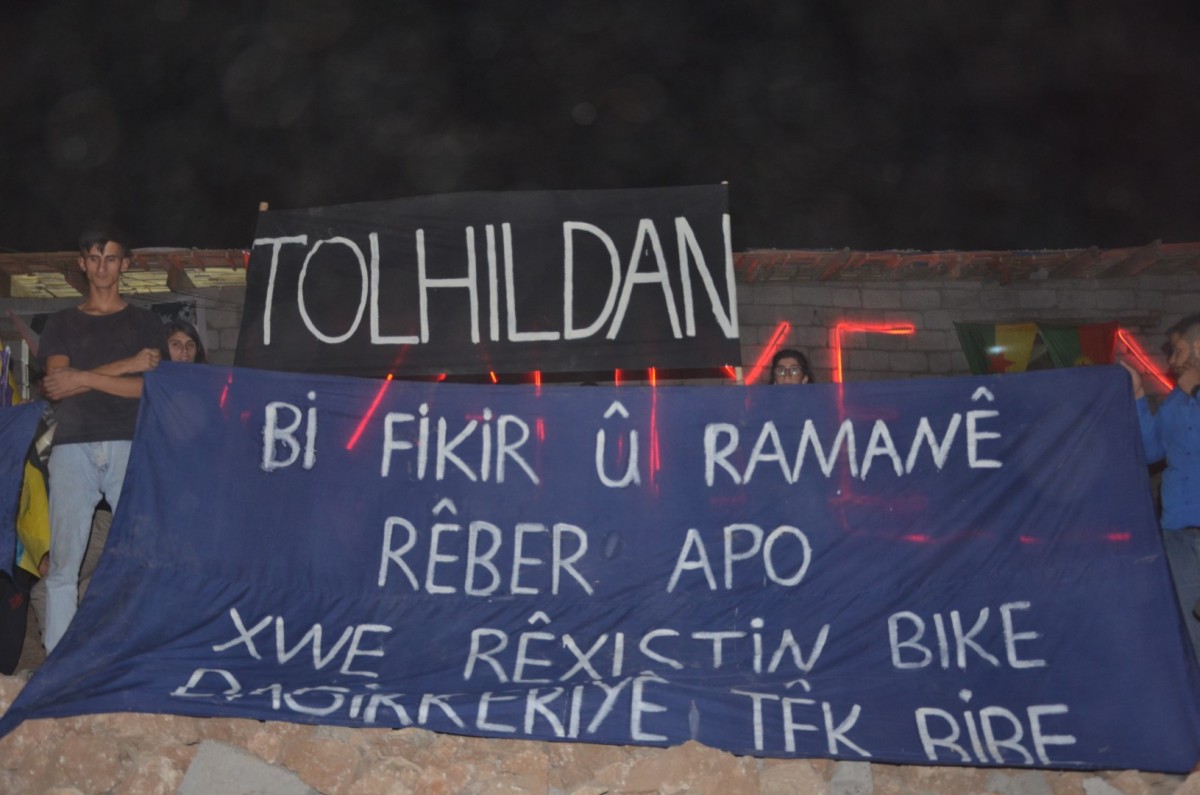 TOLHILDAN
BI FIKIR Û RAMANÊ
RÊBER APO
XWE RÊXISTIN BIKE
DAGIRKERIYÊ TÊK BIBE